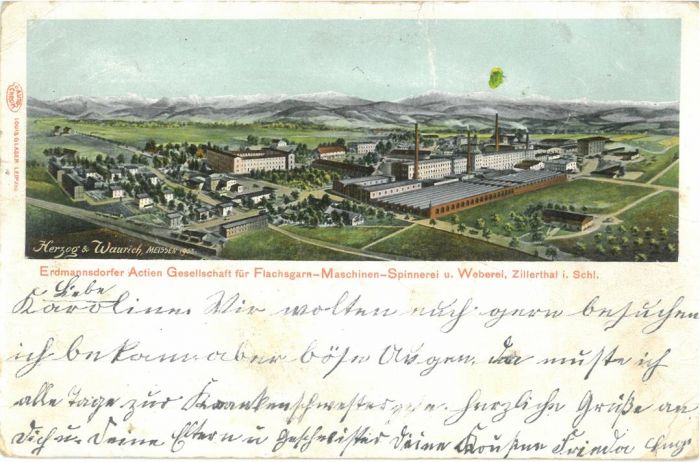 LOUIS GLASER, LEIPZIG.
Herzog & Waurich, MEISSEN 1903
Erdmannsdorfer Actien Gesellschaft für Flachsgarn-Maschinen-Spinnerei u. Weberei, Zillerthal i. Schl.
Liebe
Karoline. Wir wolten euch gern besuchen
ich bekam aber böse Augen. Da muste ich
alle Tage zur Krankenschwester gehn. Herzliche Grüße an
Dich u. Deine Eltern u Geschwister Deine Kousine Frieda